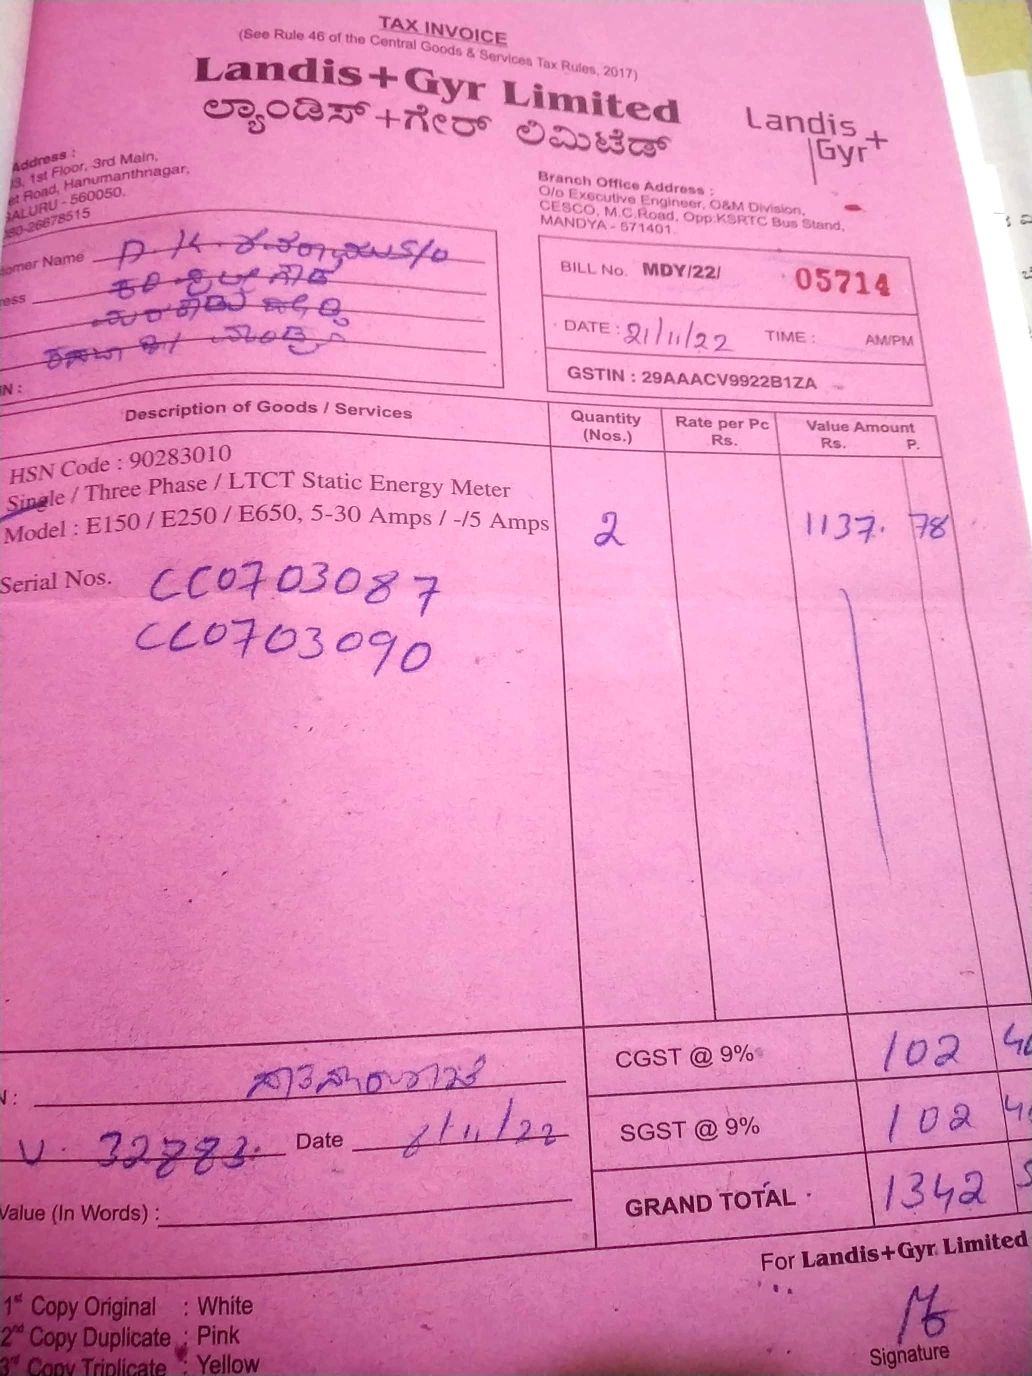 TAX INVOICE
(See Rule 46 of the Central Goods & Services Tax Rules, 2017)
Landis+Gyr Limited
ಲ್ಯಾಂಡಿಸ್+ಗೇರ್ ಲಿಮಿಟೆಡ್
Landis
Gyr+
Address :
3, 1st Floor, 3rd Main,
Road, Hanumanthnagar,
560050.
26678515
Branch Office Address :
O/o Executive Engineer, O&M Division,
CESCO, M.C.Road, Opp:KSRTC Bus Stand,
MANDYA - 571401.
Name
BILL No. MDY/22/ 05714
DATE : 21/11/22 TIME : AM/PM
GSTIN : 29AAACV9922B1ZA
Description of Goods / Services
Quantity
(Nos.)
Rate per Pc
Rs.
Value Amount
Rs. P.
HSN Code : 90283010
Single / Three Phase / LTCT Static Energy Meter
Model : E150 / E250 / E650, 5-30 Amps / -/5 Amps
2 1137. 78
Serial Nos. CC0703087
CC0703090
CGST @ 9% 102
SGST @ 9% 102
GRAND TOTAL 1342
Date
Value (In Words) :
For Landis+Gyr Limited
1st Copy Original : White
2nd Copy Duplicate : Pink
3rd Copy Triplicate : Yellow
Signature